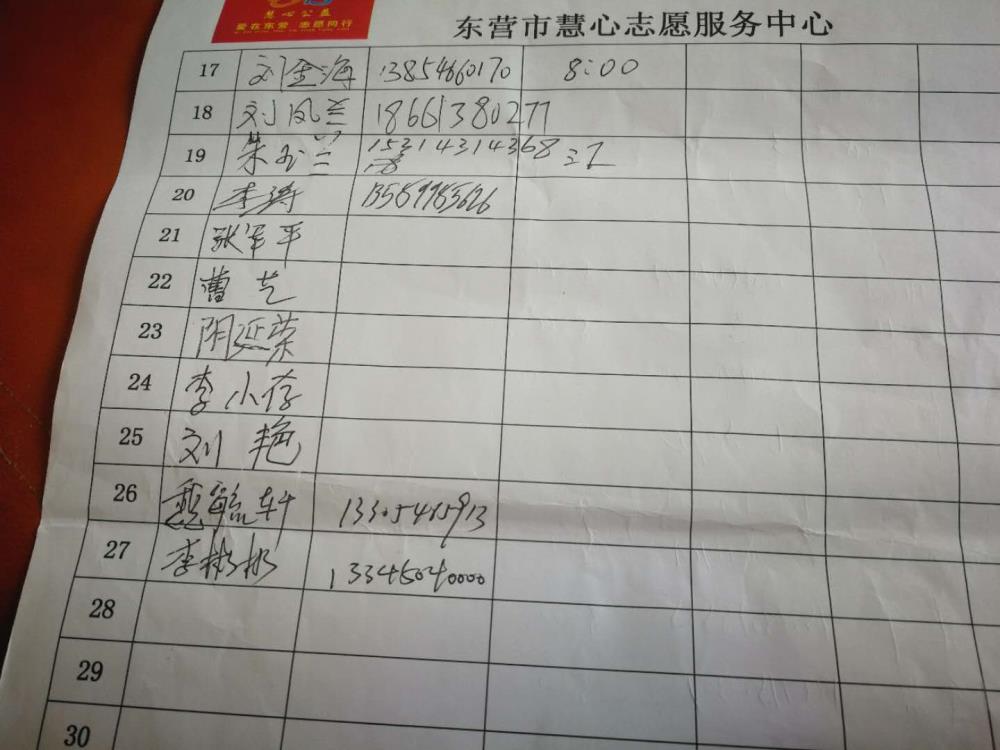 慧心公益
爱在东营 志愿同行
东营市慧心志愿服务中心
17 刘金海 13854660170 8:00
18 刘凤兰 18661380277
19 15314314368
20 李涛 13589985626
21 张军平
22 曹芝
23 阴延荣
24 李小存
25 刘艳
26 13305415913
27 李彬彬 13345040000
28
29
30